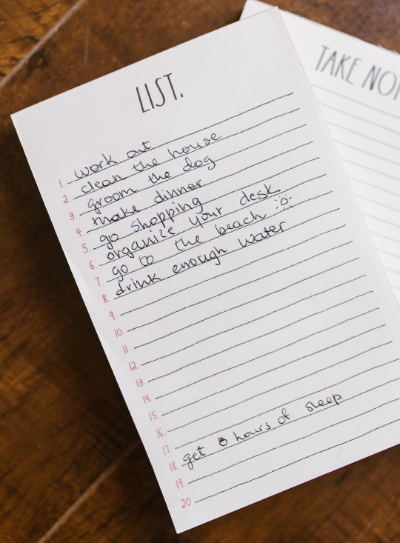 LIST.
TAKE NO
1. work out
2. clean the house
3. groom the dog
4. make dinner
5. go shopping
6. organize your desk
7. go to the beach :o:
8. drink enough water
9.
10.
11.
12.
13.
14.
15.
16.
17.
18. get 8 hours of sleep
19.
20.